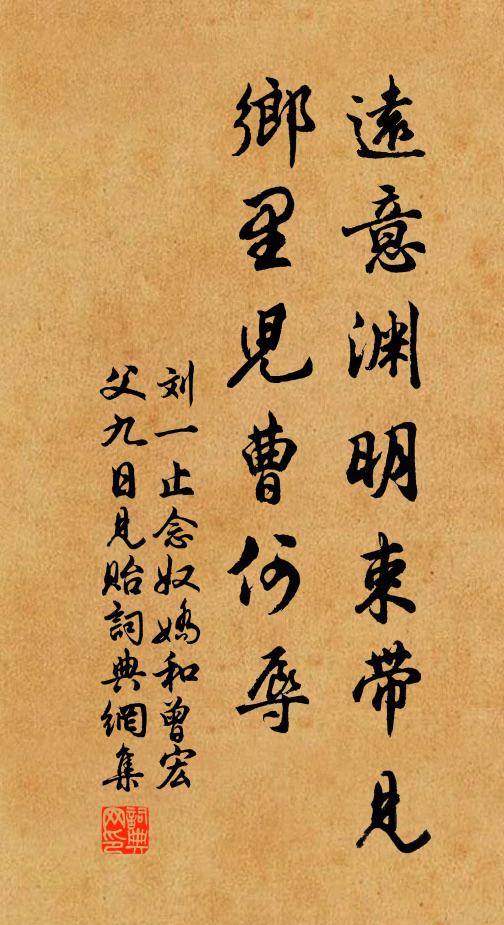 遠意淵明束帶見
鄉里兒曹何辱
刘一止念奴嬌和曾宏
父九日見貽詞典網集
詞典
网印